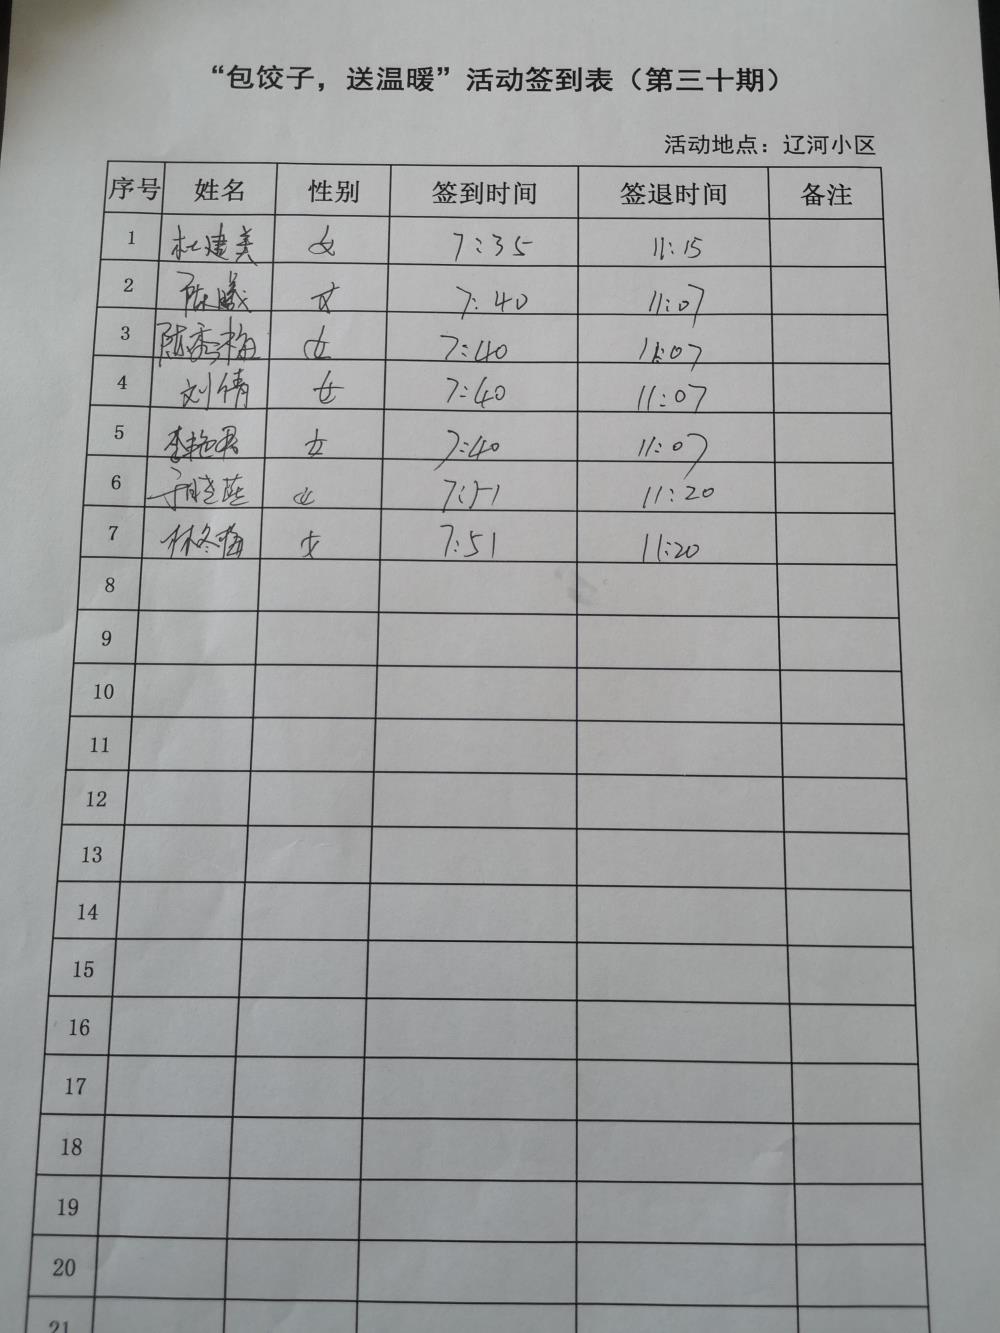 “包饺子，送温暖”活动签到表（第三十期）
活动地点：辽河小区
序号 姓名 性别 签到时间 签退时间 备注
1 杜建美 女 7:35 11:15
2 陈曦 女 7:40 11:07
3 陈秀梅 女 7:40 11:07
4 刘倩 女 7:40 11:07
5 李艳君 女 7:40 11:07
6 女 7:51 11:20
7 林冬梅 女 7:51 11:20
8
9
10
11
12
13
14
15
16
17
18
19
20
21